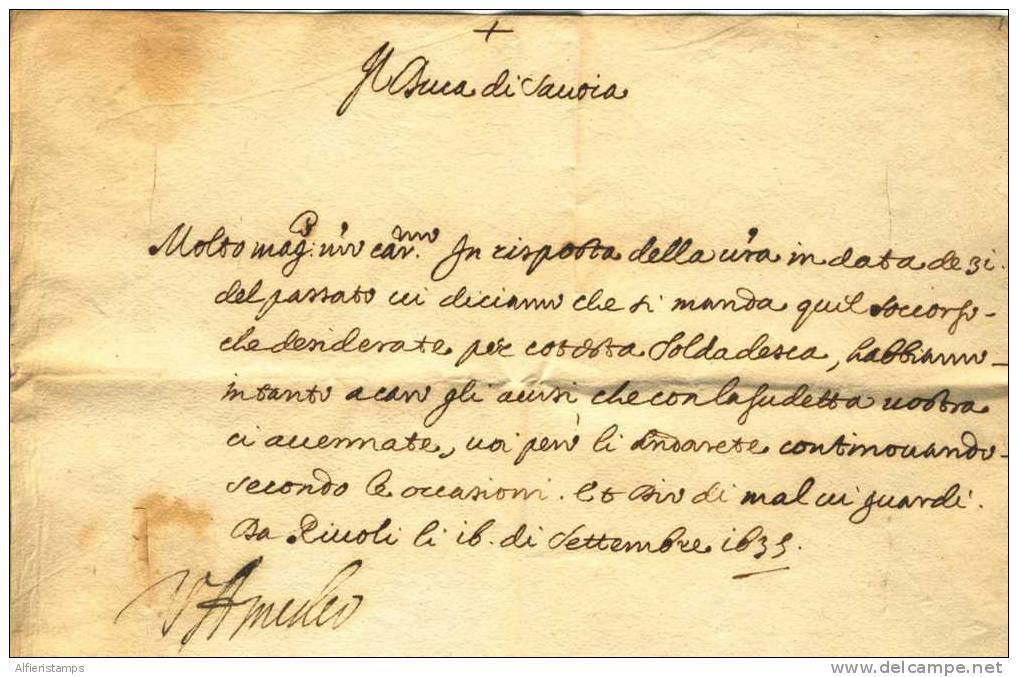 +
Il Duca di Sauoia
Molto mag.co nro car.mo In risposta della vra in data de 31.
del passato vi diciamo che si manda quil soccorso
che desiderate per cotesta Soldadesca, habbiamo
intanto a caro gli auisi che con la sudetta uostra
ci auennate, uoi però li andarete continouando
secondo le occasioni. Et Dio di mal vi guardi.
Da Riuoli li 16. di Settembre 1635.
V Amedeo
Alfieristamps
www.delcampe.net